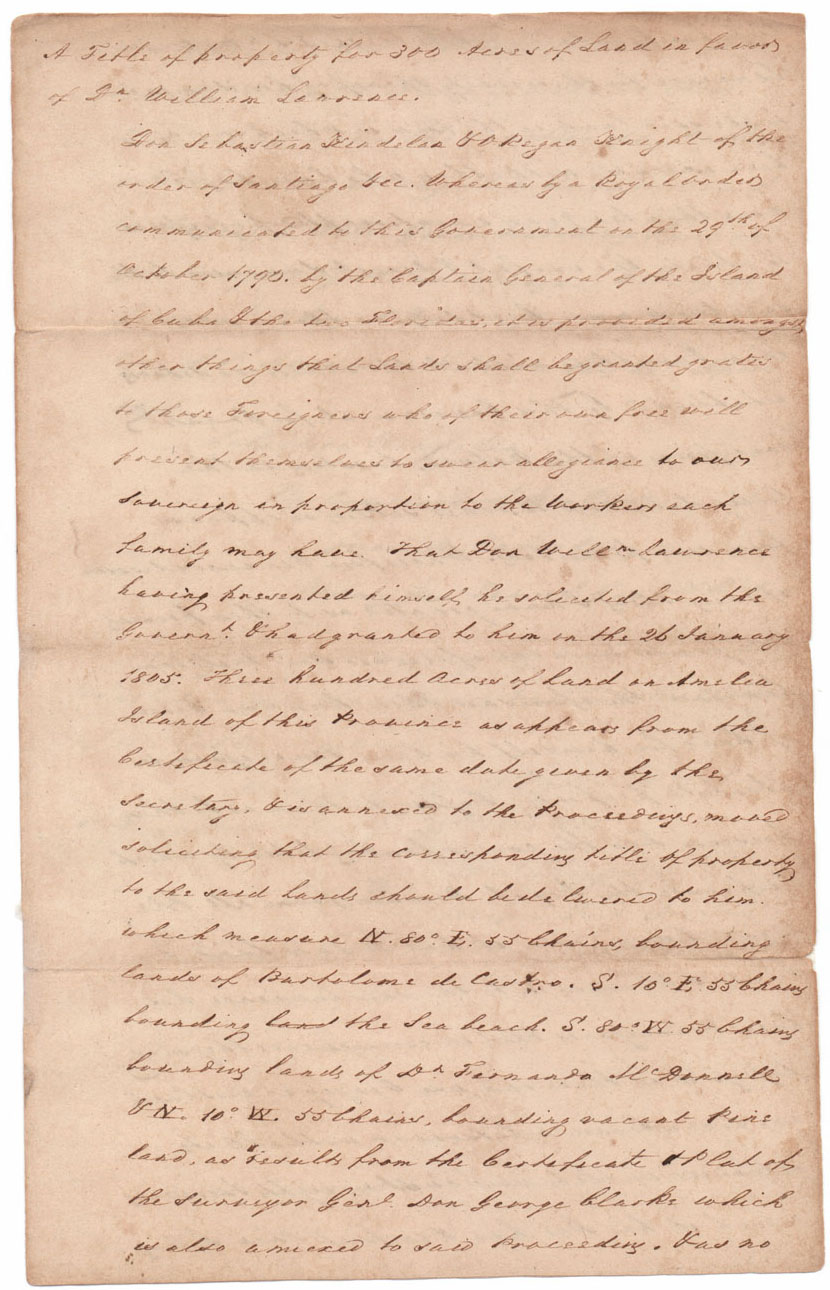 A Title of property for 300 Acres of Land in favor
of Dn. William Lawrence.
Don Sebastian Kindelan & O Regan Knight of the
order of Santiago &cc. Whereas by a Royal order
communicated to this Government on the 29th of
October 1790. by the Captain General of the Island
of Cuba & the two Floridas, it is provided amongst
other things that Lands shall be granted gratis
to those Foreigners who of their own free will
present themselves to swear allegiance to our
Sovereign in proportion to the Workers each
family may have. That Don Willm Lawrence
having presented himself, he solicited from the
Governt. & had granted to him on the 26 January
1805. Three hundred Acres of Land on Amelia
Island of this Province as appears from the
Certificate of the same date given by the
Secretary, & is annexed to the Proceedings, moved
soliciting that the corresponding title of property
to the said Lands should be delivered to him.
which measure N. 80° E. 55 Chains, bounding
lands of Bartolome de Castro. S. 10° E 55 Chains
bounding land the Sea beach. S. 80° W 55 Chains
bounding lands of Dn Fernando McDonnell
& N. 10° W. 55 Chains, bounding vacant Pine
land, as results from the Certificate & Plat of
the Surveyor Genl. Don George Clarke which
is also annexed to said Proceeding. & as no